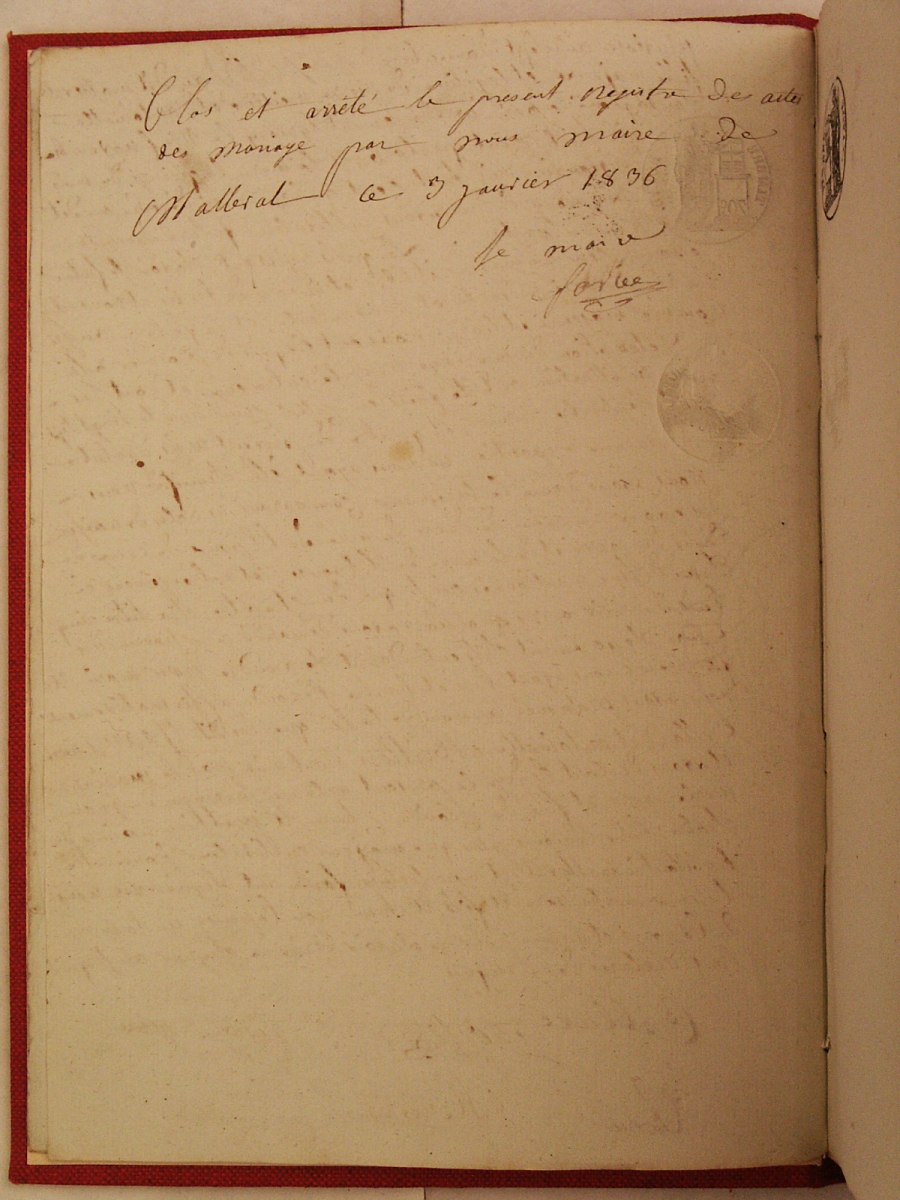 Clos et arrêté le present registre des actes
des mariage par nous maire de
Malleval ce 3 janvier 1836
le maire